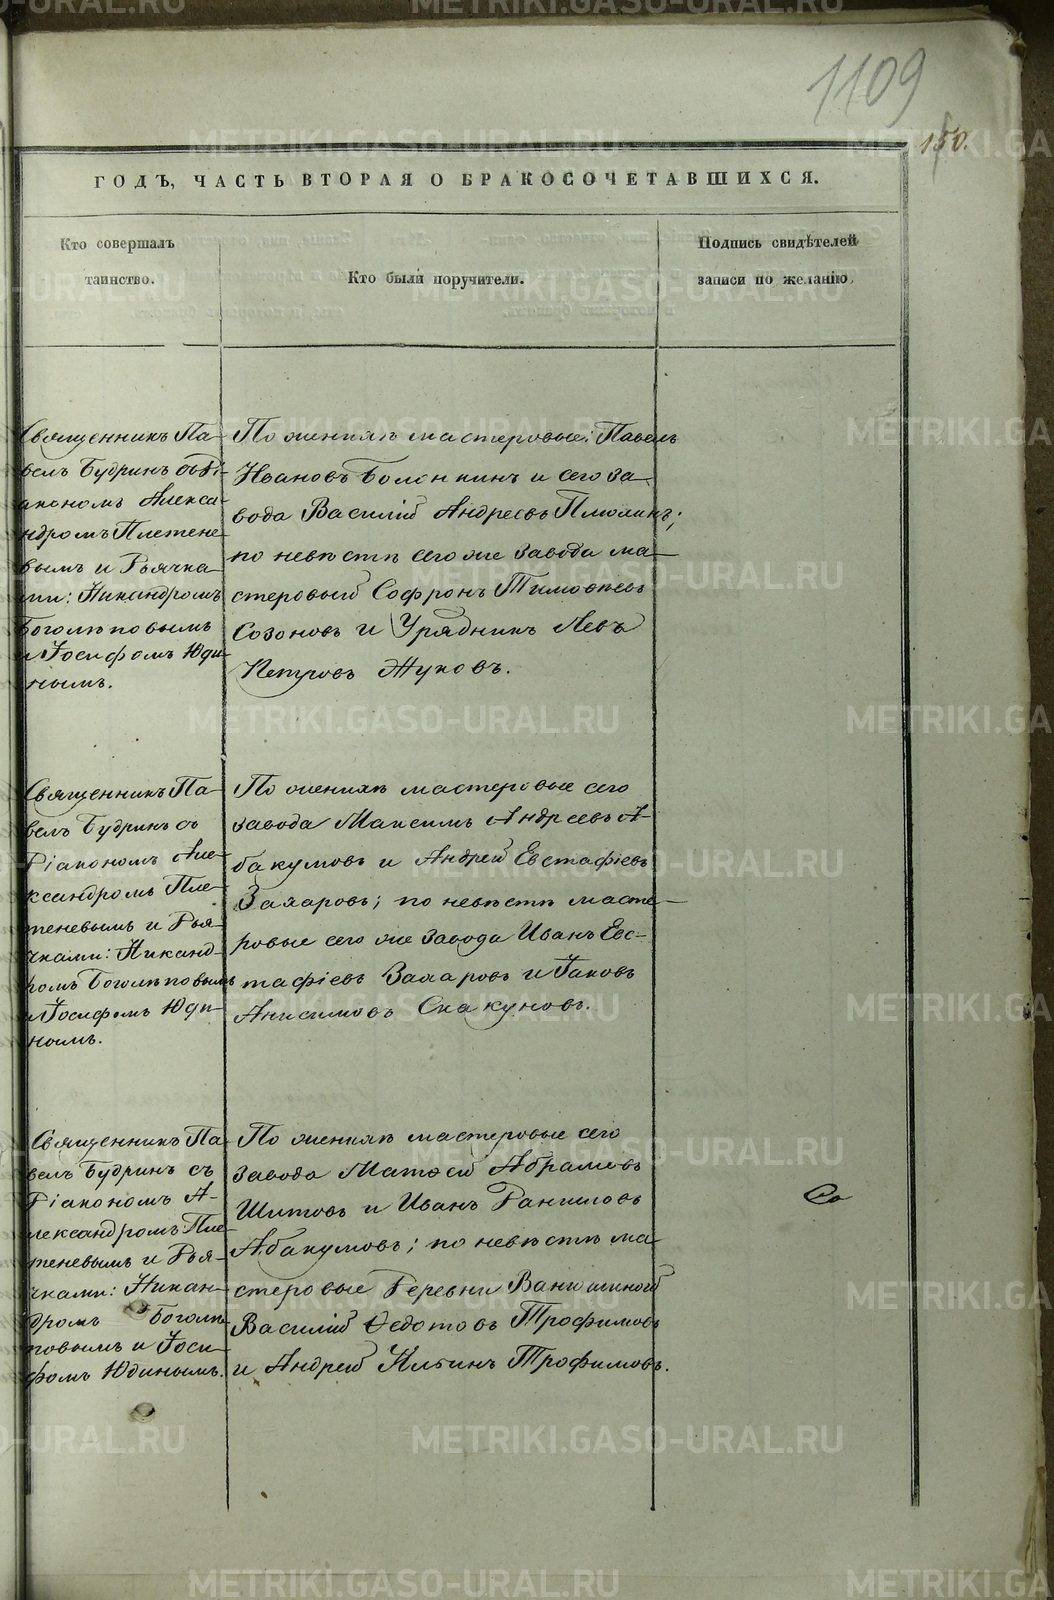 1109
150.
ГОДЪ, ЧАСТЬ ВТОРАЯ О БРАКОСОЧЕТАВШИХСЯ.
Кто совершалъ
таинство.
Кто были поручители.
Подпись свидѣтелей
записи по желанію.
Священникъ Па-
велъ Будринъ съ Ді-
акономъ Алекса-
ндромъ Плетене
вымъ и Дьячка
ми: Никандромъ
Боголѣповымъ
и Іосифомъ Юди
нымъ.
По женихѣ мастеровые: Павелъ
Ивановъ Болонкинъ и сего за-
вода Василій Андреевъ
по невѣстѣ сего же завода ма-
стеровый Софронъ Тимоѳеевъ
Созоновъ и Урядникъ Левъ
Петровъ Жуковъ.
Священникъ Па-
велъ Будринъ съ
Діакономъ Але-
ксандромъ Пле-
теневымъ и Дья-
чками: Никанд-
ромъ Боголѣповымъ
и Іосифомъ Юди-
нымъ.
По женихѣ мастеровые сего
завода Максимъ Андреевъ А-
бакумовъ и Андрей Евстафіевъ
Захаровъ; по невѣстѣ масте-
ровые сего же завода Иванъ Евс-
тафіевъ Захаровъ и Іаковъ
Анисимовъ Скакуновъ.
Священникъ Па-
велъ Будринъ съ
Діакономъ А-
лександромъ Пле
теневымъ и Дья-
чками: Никан-
дромъ Боголѣ-
повымъ и Іоси-
фомъ Юдинымъ.
По женихѣ мастеровые сего
завода Матвей Абрамовъ
Шитовъ и Иванъ Даниловъ
Абакумовъ; по невѣстѣ ма-
стеровые Деревни Ванюшиной
Василій Ѳедотовъ Трофимовъ
и Андрей Ильинъ Трофимовъ.
METRIKI.GASO-URAL.RU